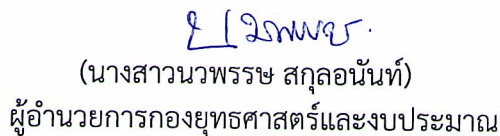 (นางสาวนวพรรษ สกุลอนันท์)
ผู้อำนวยการกองยุทธศาสตร์และงบประมาณ